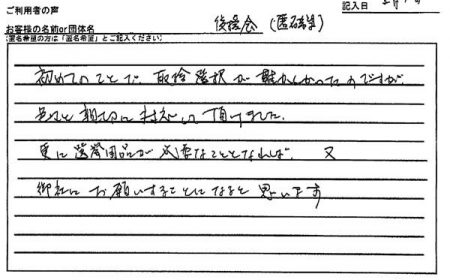 ご利用者の声
記入日
お客様の名前or団体名 後援会(匿名希望)
(匿名希望の方は「匿名希望」とご記入ください)
初めてのことで 取捨選択が難しかったのですが
色々と親切に対応して頂けました。
更に選挙用品が必要なこととなれば、又
御社にお願いすることになると思います